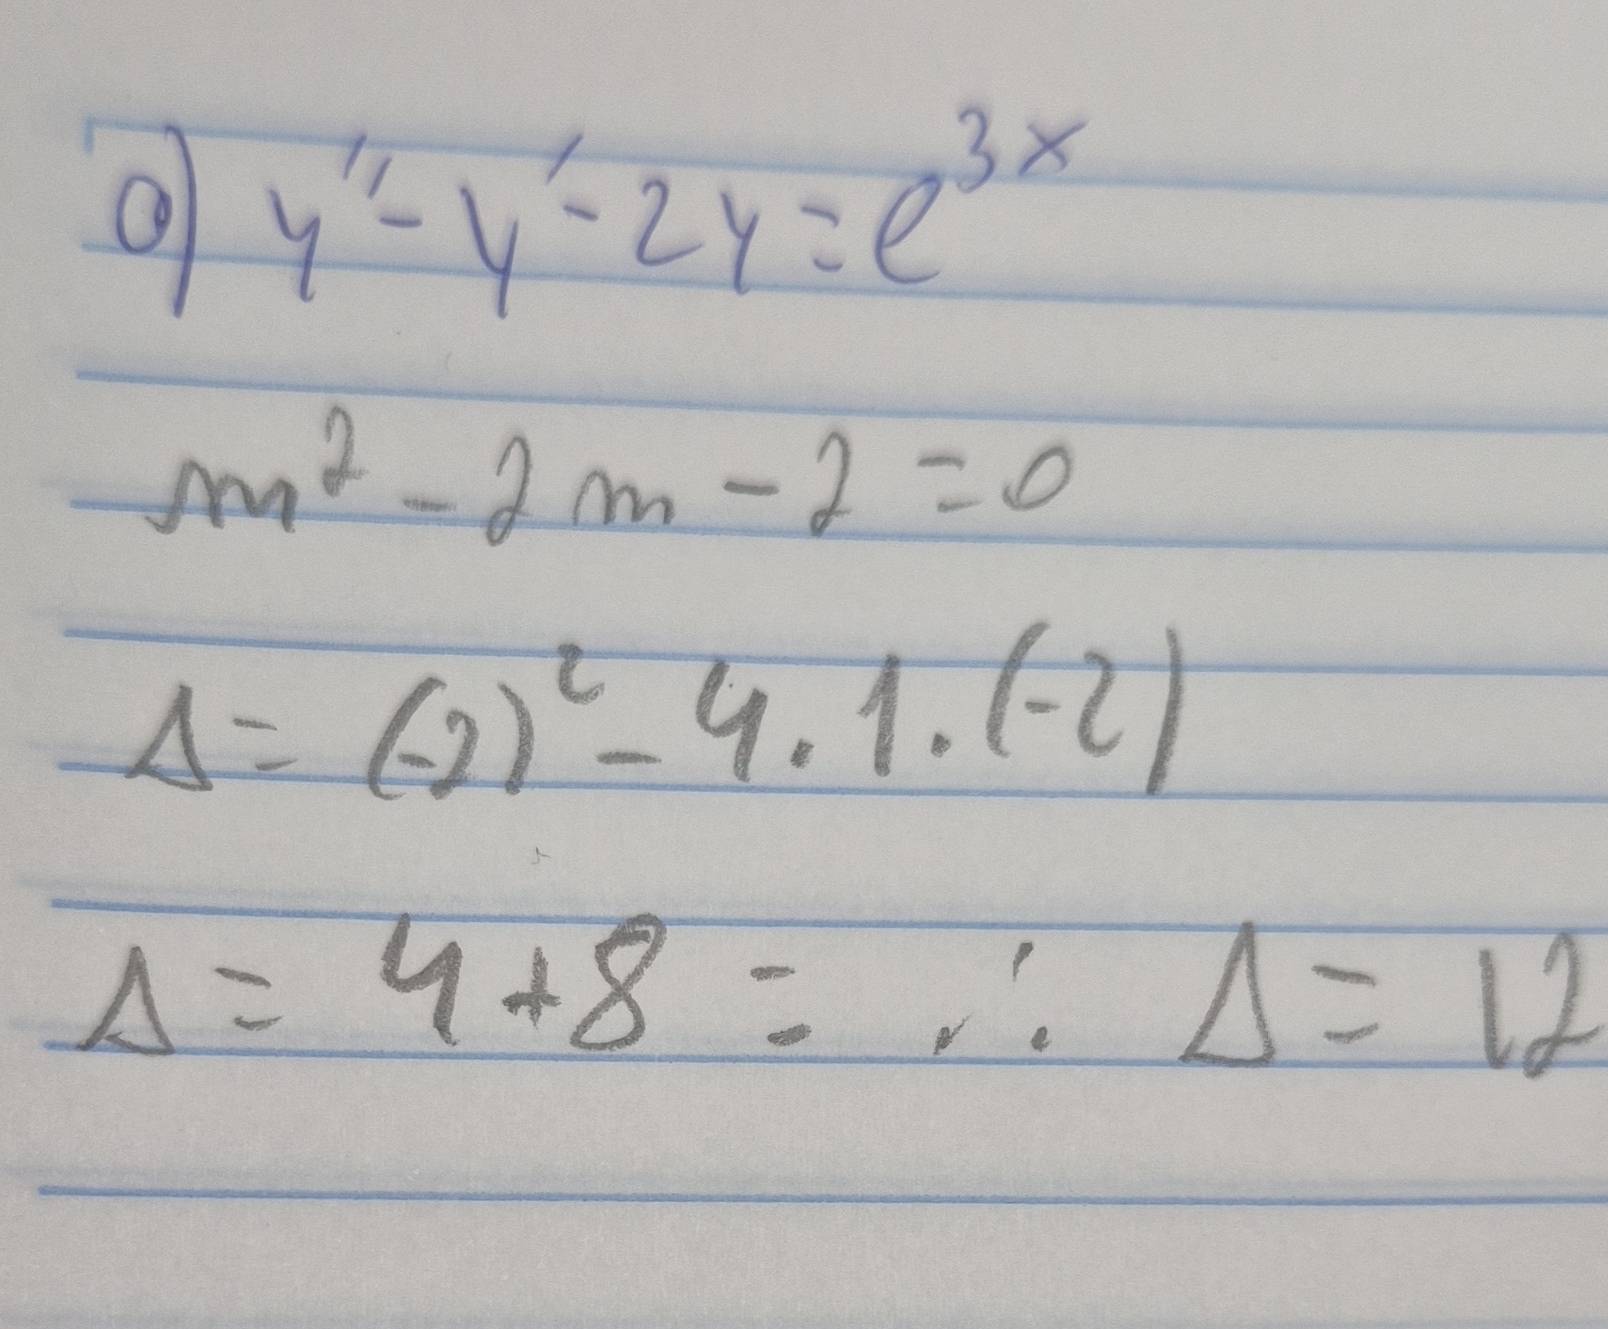 a) y'' - y' - 2y = e^{3x}
m² - 2m - 2 = 0
Δ = (-2)² - 4 . 1 . (-2)
Δ = 4 + 8 = ∴ Δ = 12